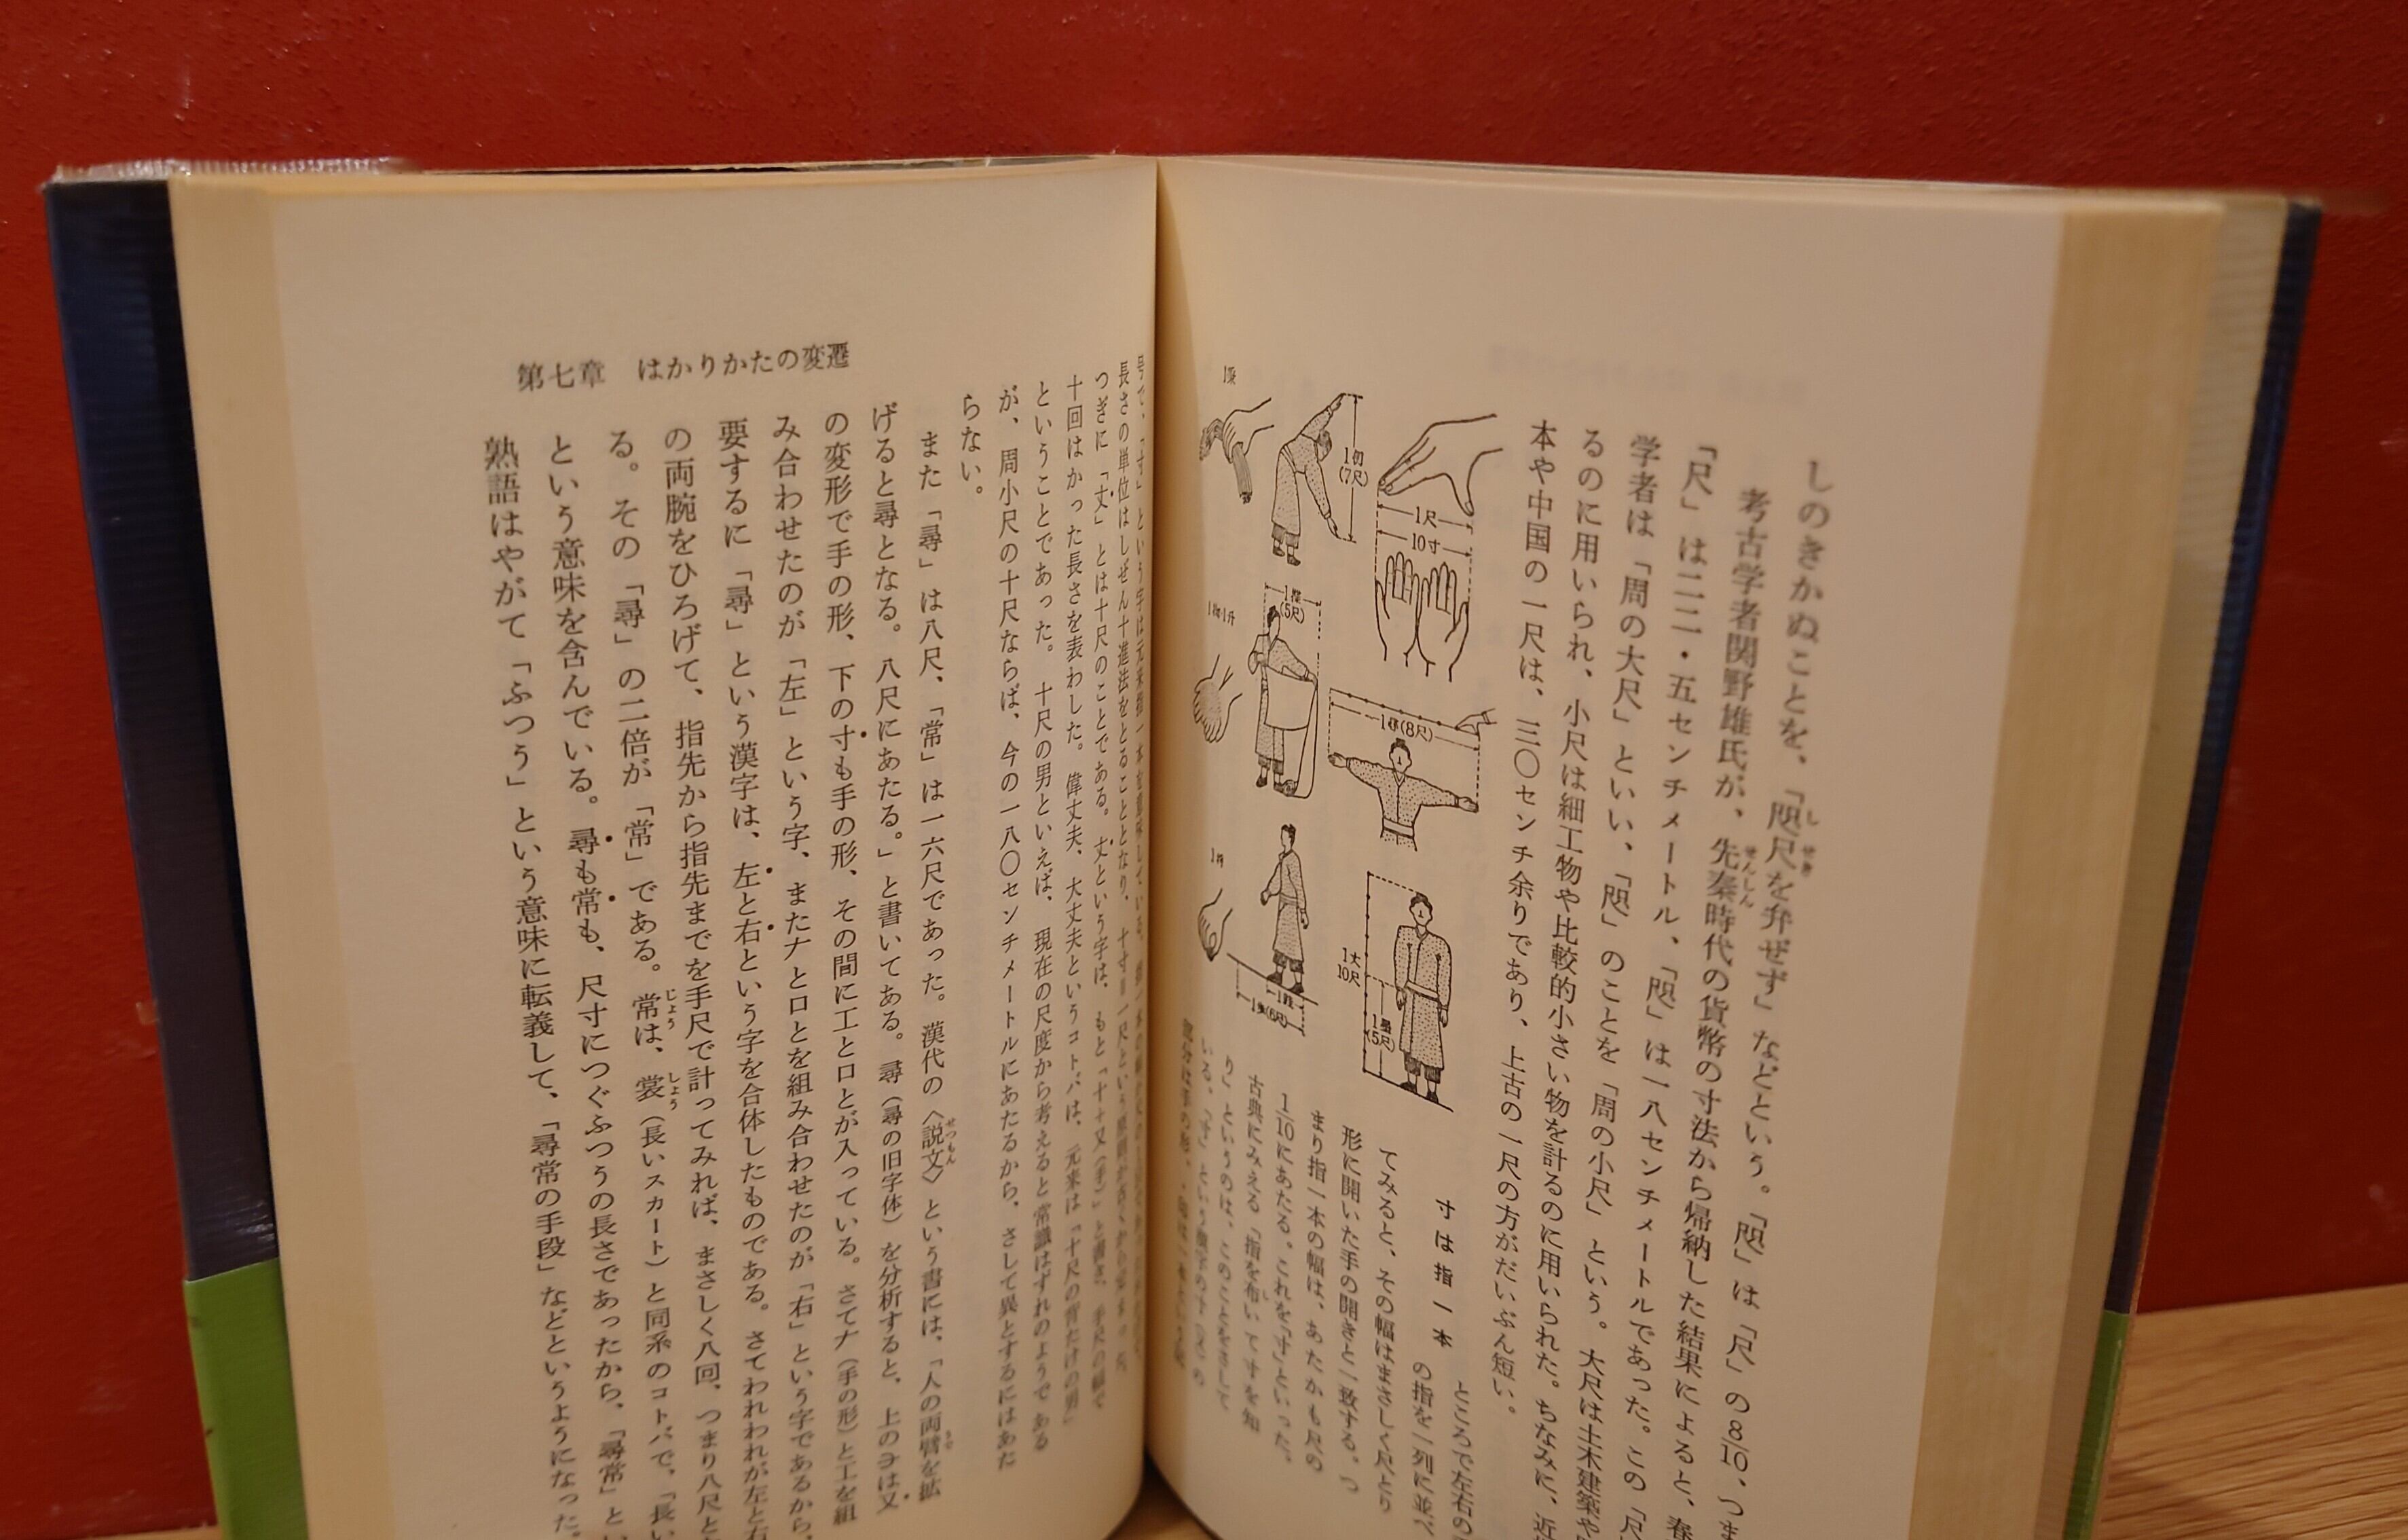 しのきかぬことを、「咫尺を弁ぜず」などという。「咫」は「尺」の8/10、つま
考古学者関野雄氏が、先秦時代の貨幣の寸法から帰納した結果によると、春
「尺」は二二・五センチメートル、「咫」は一八センチメートルであった。この「尺
学者は「周の大尺」といい、「咫」のことを「周の小尺」という。大尺は土木建築や
るのに用いられ、小尺は細工物や比較的小さい物を計るのに用いられた。ちなみに、近
本や中国の一尺は、三〇センチ余りであり、上古の一尺の方がだいぶん短い。
寸は指一本
ところで左右の
の指を一列に並べ
てみると、その幅はまさしく尺とり
形に開いた手の開きと一致する。つ
まり指一本の幅は、あたかも尺の
1/10にあたる。これを「寸」といった。
古典にみえる「指を布いて寸を知
り」というのは、このことをさして
いる。「寸」という漢字の
1尺
10寸
1仞
(7尺)
(5尺)
(8尺)
1丈
10尺
(5尺)
(6尺)
第七章 はかりかたの変遷
長さの単位はしぜん十進法をとることとなり、十寸=一尺という
つぎに「丈」とは十尺のことである。丈という字は、もと「十+又(手)」と書き、手尺の幅で
十回はかった長さを表わした。偉丈夫、大丈夫というコトバは、元来は「十尺の背たけの男」
ということであった。十尺の男といえば、現在の尺度から考えると常識はずれのようである
が、周小尺の十尺ならば、今の一八〇センチメートルにあたるから、さして異とするにはあた
らない。
また「尋」は八尺、「常」は一六尺であった。漢代の〈説文〉という書には、「人の両臂を拡
げると尋となる。八尺にあたる。」と書いてある。尋(尋の旧字体)を分析すると、上のヨは又
の変形で手の形、下の寸も手の形、その間に工と口とが入っている。さてナ(手の形)と工を組
み合わせたのが「左」という字、またナと口とを組み合わせたのが「右」という字であるから、
要するに「尋」という漢字は、左と右という字を合体したものである。さてわれわれが左と右
の両腕をひろげて、指先から指先までを手尺で計ってみれば、まさしく八回、つまり八尺と
る。その「尋」の二倍が「常」である。常は、裳(長いスカート)と同系のコトバで、「長い
という意味を含んでいる。尋も常も、尺寸につぐふつうの長さであったから、「尋常」とい
熟語はやがて「ふつう」という意味に転義して、「尋常の手段」などというようになった。